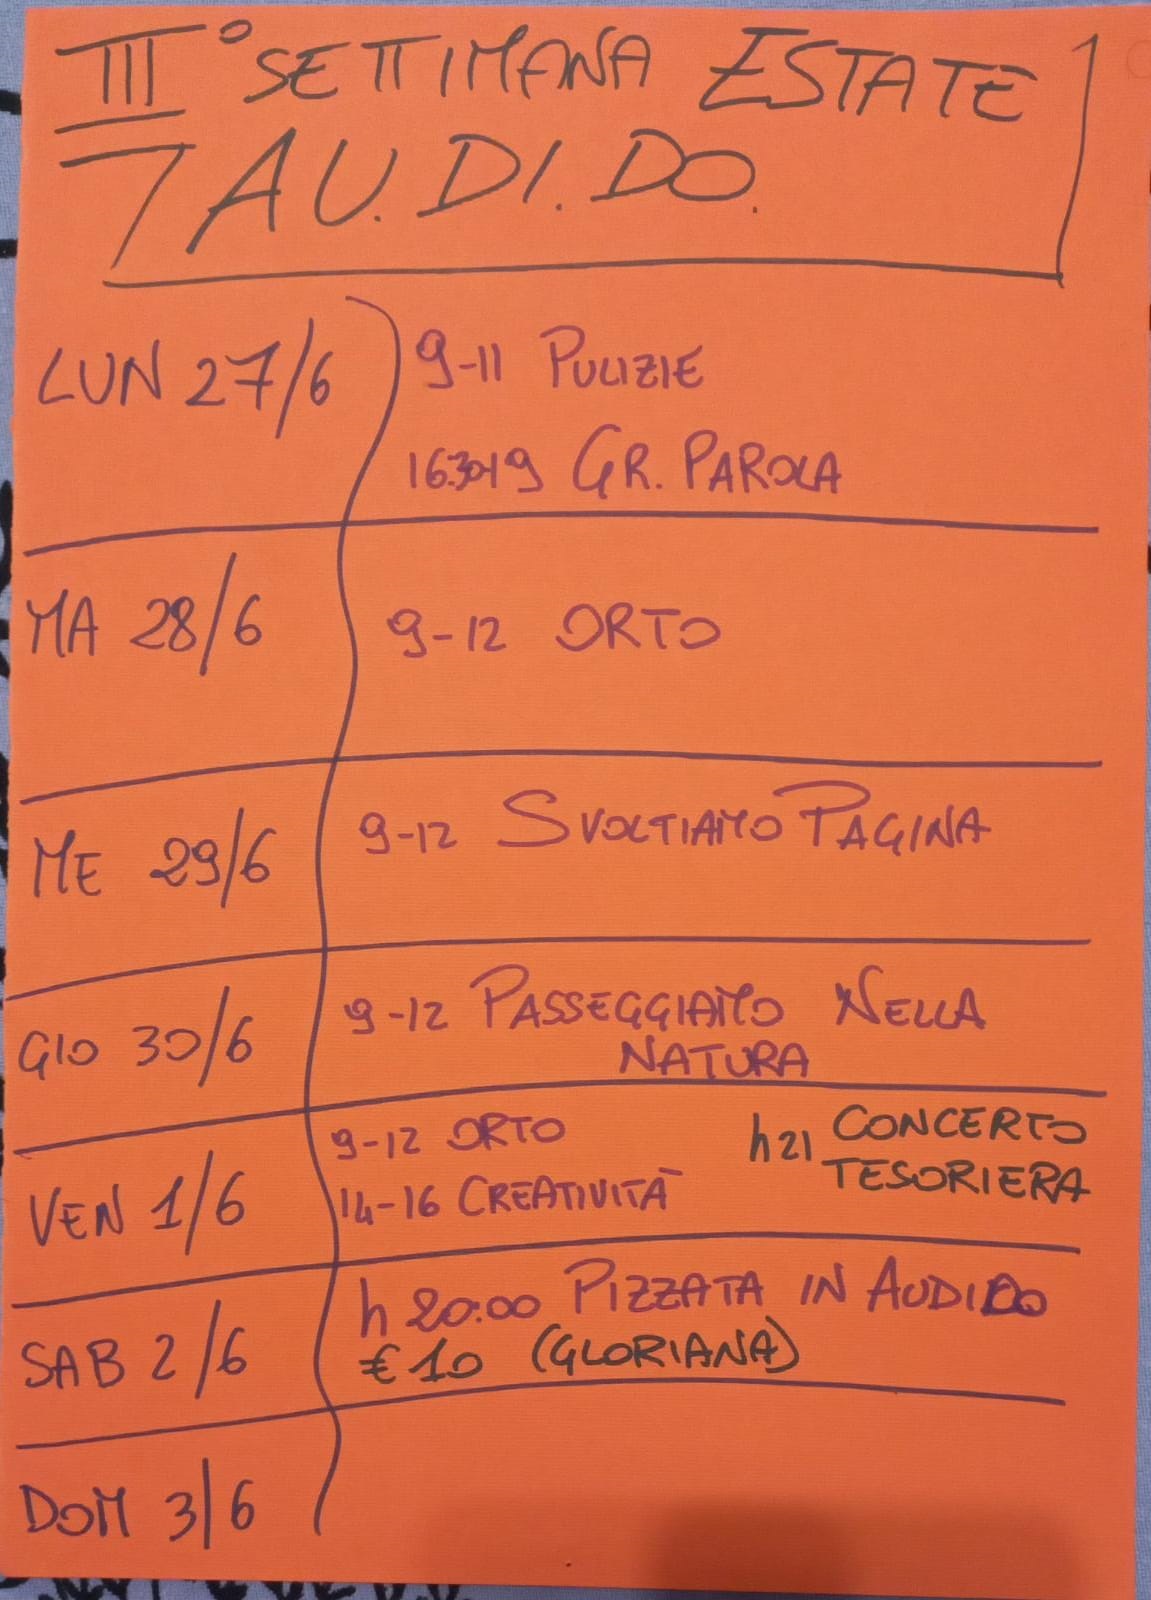 III° SETTIMANA ESTATE
AU.DI.DO.
LUN 27/6
9-11 PULIZIE
16.30-19 GR. PAROLA
MA 28/6
9-12 ORTO
ME 29/6
9-12 SVOLTIAMO PAGINA
GIO 30/6
9-12 PASSEGGIAMO NELLA
NATURA
VEN 1/6
9-12 ORTO
14-16 CREATIVITÀ
h21 CONCERTO
TESORIERA
SAB 2/6
h 20:00 PIZZATA IN AUDIDO
€10 (GLORIANA)
DOM 3/6